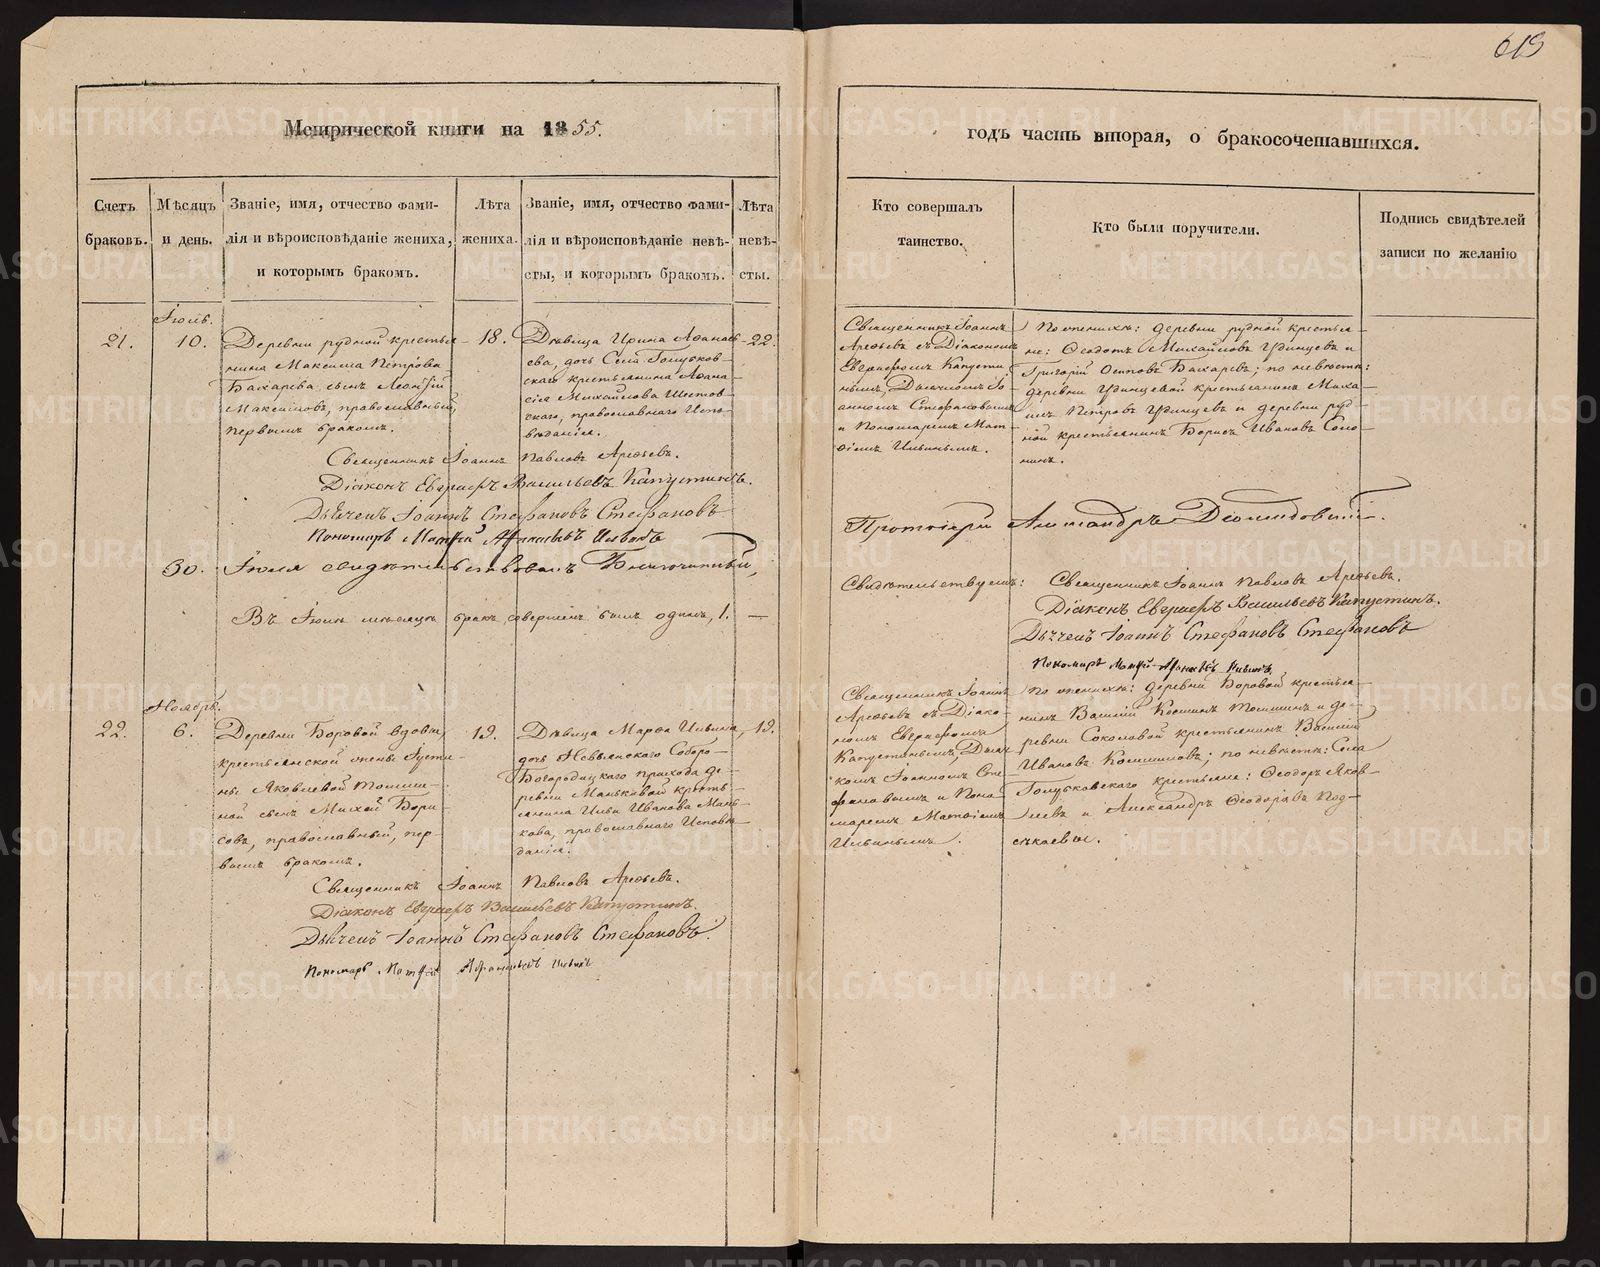 619
Метрической книги на 1855.
годъ часть вторая, о бракосочетавшихся.
Счетъ браковъ.
Мѣсяцъ и день.
Званіе, имя, отчество фами-
лія и вѣроисповѣданіе жениха,
и которымъ бракомъ.
Лѣта
жениха.
Званіе, имя, отчество фами-
лія и вѣроисповѣданіе невѣ-
сты, и которымъ бракомъ.
Лѣта
невѣ-
сты.
Кто совершалъ
таинство.
Кто были поручители.
Подпись свидѣтелей
записи по желанію
21.
Іюль.
10.
Деревни рудной крестья-
нина Максима Петрова
Бахарева сынъ Леонтій
Максимовъ, православный,
первымъ бракомъ.
18.
Дѣвица Ирина Афанась-
ева, дочь Села Голубков-
скаго крестьянина Афана-
сія Михайлова Шестов-
скаго, православнаго Испо-
вѣданія.
22.
Священникъ Іоаннъ
Арефьевъ съ Діакономъ
Евграфомъ Капусти-
нымъ, Дьячкомъ Іо-
анномъ Стефановымъ
и Пономаремъ Мат-
ѳіемъ Ильиныхъ.
По женихѣ: деревни рудной крестья-
не: Ѳеодотъ Михайловъ Удинцевъ и
Григорій Осиповъ Бахаревъ; по невѣстѣ:
деревни Удинцевой крестьянинъ Миха-
илъ Петровъ Удинцевъ и деревни руд-
ной крестьянинъ Борисъ Ивановъ Соло-
нинъ.
Священникъ Іоаннъ Павловъ Арефьевъ.
Діаконъ Евграфъ Васильевъ Капустинъ.
Дьячекъ Іоаннъ Стефановъ Стефановъ
Пономарь Матфій Афанасьевъ Ильинъ
Протоіерей Александръ Діомидовскій.
30. Іюля свидѣтельствовалъ Благочинный,
Въ Іюлѣ мѣсяцѣ бракъ совершенъ былъ одинъ, 1. —
Свидѣтельствуемъ: Священникъ Іоаннъ Павловъ Арефьевъ.
Діаконъ Евграфъ Васильевъ Капустинъ.
Дьячекъ Іоаннъ Стефановъ Стефановъ
Пономарь Матфій Афанасьевъ Ильинъ
22.
Ноябрь.
6.
Деревни Боровой вдовы,
крестьянской жены Іусти-
ны Яковлевой Томши-
ной сынъ Михей Бори-
совъ, православный, пер-
вымъ бракомъ.
19.
Дѣвица Марѳа Ильина,
дочь Невьянскаго Соборо-
Богородицкаго прихода де-
ревни Маньковой кресть-
янина Ильи Иванова Мань-
кова, православнаго Исповѣ-
данія.
19.
Священникъ Іоаннъ
Арефьевъ съ Діако-
номъ Евграфомъ
Капустинымъ, Дьяч-
комъ Іоанномъ Сте-
фановымъ и Поно-
маремъ Матѳіемъ
Ильинымъ.
По женихѣ: деревни Боровой крестья-
нинъ Василій Козминъ Томшинъ и де-
ревни Соколовой крестьянинъ Василій
Ивановъ; по невѣстѣ: Села
Голубковскаго крестьяне: Ѳеодоръ Яков-
левъ и Александръ Ѳеодоровъ Под-
съкаевы.
Священникъ Іоаннъ Павловъ Арефьевъ.
Діаконъ Евграфъ Васильевъ Капустинъ.
Дьячекъ Іоаннъ Стефановъ Стефановъ.
Пономарь Матфій Афанасьевъ Ильинъ
METRIKI.GASO-URAL.RU